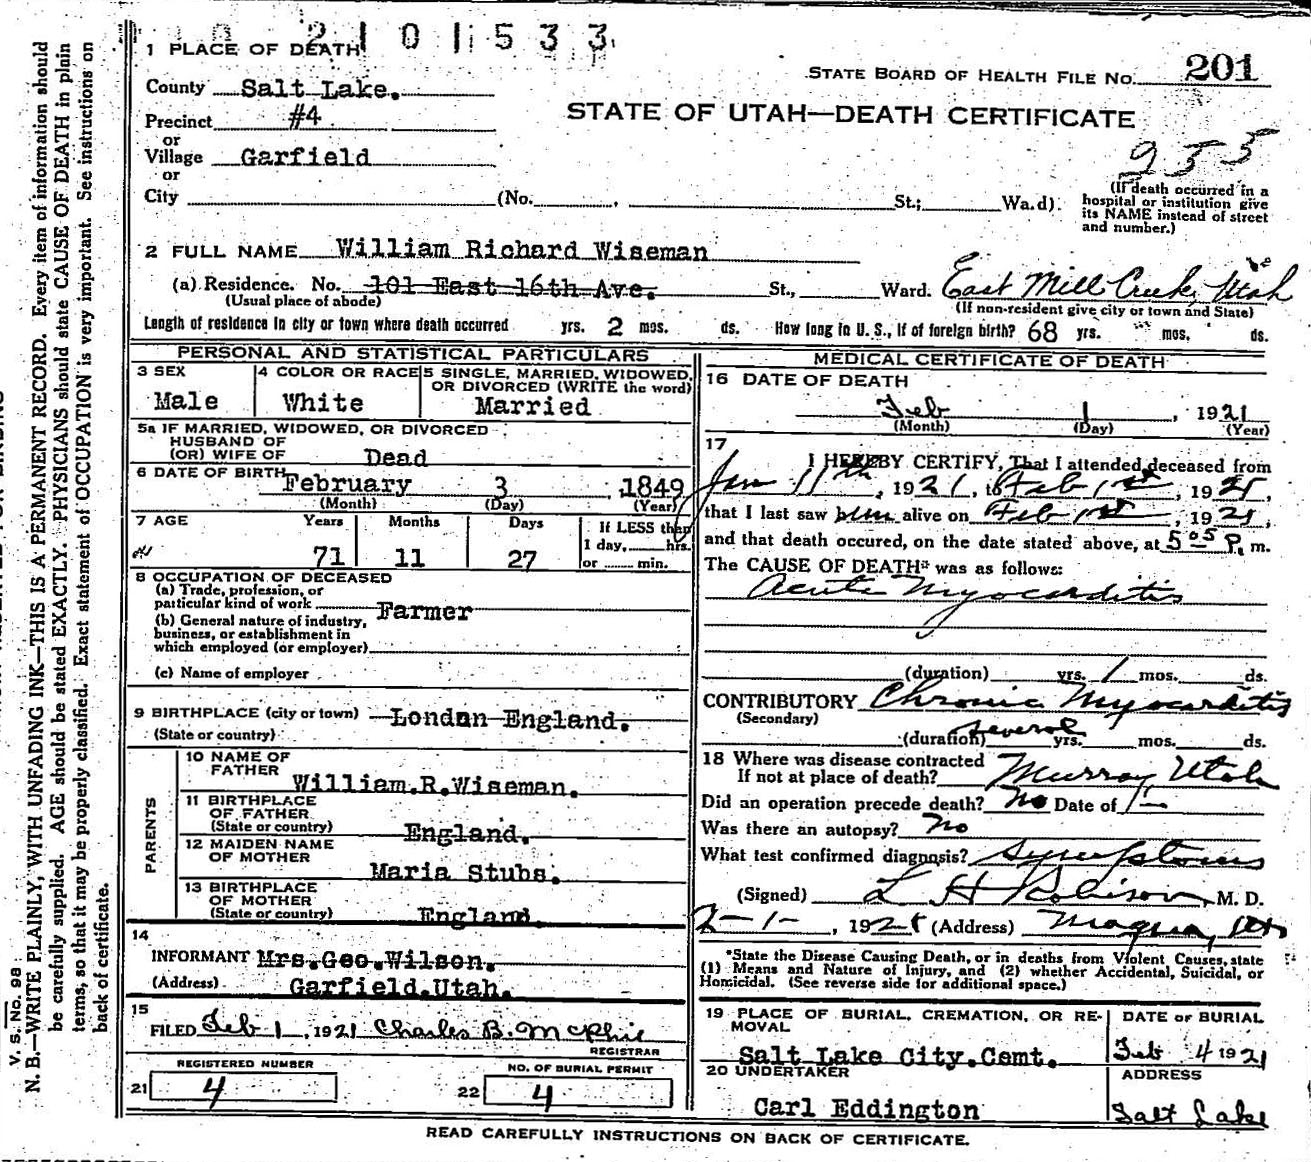 2 1 0 1 5 3 3
1 PLACE OF DEATH
STATE BOARD OF HEALTH FILE NO. 201
County Salt Lake.
STATE OF UTAH—DEATH CERTIFICATE
Precinct #4
or
Village Garfield
or
City (No. , St.; Wa.d)
(If death occurred in a
hospital or institution give
its NAME instead of street
and number.)
2 FULL NAME William Richard Wiseman
(a) Residence. No. 101 East 16th Ave. St., Ward. East Mill Creek, Utah
(Usual place of abode)
(If non-resident give city or town and State)
Length of residence in city or town where death occurred yrs. 2 mos. ds. How long in U. S., if of foreign birth? 68 yrs. mos. ds.
PERSONAL AND STATISTICAL PARTICULARS
3 SEX
Male
4 COLOR OR RACE
White
5 SINGLE, MARRIED, WIDOWED,
OR DIVORCED (WRITE the word)
Married
5a IF MARRIED, WIDOWED, OR DIVORCED
HUSBAND OF
(OR) WIFE OF Dead
6 DATE OF BIRTH February 3, 1849
(Month) (Day) (Year)
7 AGE Years Months Days If LESS than
1 day, hrs.
71 11 27 or min.
8 OCCUPATION OF DECEASED
(a) Trade, profession, or
particular kind of work Farmer
(b) General nature of industry,
business, or establishment in
which employed (or employer)
(c) Name of employer
9 BIRTHPLACE (city or town) London England.
(State or country)
PARENTS
10 NAME OF
FATHER William.R.Wiseman.
11 BIRTHPLACE
OF FATHER
(State or country) England.
12 MAIDEN NAME
OF MOTHER Maria Stubs.
13 BIRTHPLACE
OF MOTHER
(State or country) England.
14
INFORMANT Mrs.Geo.Wilson.
(Address) Garfield.Utah.
15
FILED Feb 1, 1921 Charles B. McPhie
REGISTRAR
REGISTERED NUMBER
21 4
NO. OF BURIAL PERMIT
22 4
MEDICAL CERTIFICATE OF DEATH
16 DATE OF DEATH
Feb 1, 1921
(Month) (Day) (Year)
17
I HEREBY CERTIFY, That I attended deceased from
Jan 11th, 1921, to Feb 1st, 1921,
that I last saw him alive on Feb 1st, 1921,
and that death occured, on the date stated above, at 5 05 P. m.
The CAUSE OF DEATH* was as follows:
Acute Myocarditis
(duration) yrs. 1 mos. ds.
CONTRIBUTORY Chronic Myocarditis
(Secondary)
(duration) several yrs. mos. ds.
18 Where was disease contracted
If not at place of death? Murray, Utah
Did an operation precede death? No Date of
Was there an autopsy? No
What test confirmed diagnosis? Symptoms
(Signed) L H Robison, M. D.
2-1-, 1921 (Address) Magna, Ut
*State the Disease Causing Death, or in deaths from Violent Causes, state
(1) Means and Nature of Injury, and (2) whether Accidental, Suicidal, or
Homicidal. (See reverse side for additional space.)
19 PLACE OF BURIAL, CREMATION, OR RE-
MOVAL
Salt Lake City.Cemt.
DATE OF BURIAL
Feb 4 1921
20 UNDERTAKER
Carl Eddington
ADDRESS
Salt Lake
READ CAREFULLY INSTRUCTIONS ON BACK OF CERTIFICATE.
V. S. No. 98
N. B.—WRITE PLAINLY, WITH UNFADING INK—THIS IS A PERMANENT RECORD. Every item of information should
be carefully supplied. AGE should be stated EXACTLY. PHYSICIANS should state CAUSE OF DEATH in plain
terms, so that it may be properly classified. Exact statement of OCCUPATION is very important. See instructions on
back of certificate.